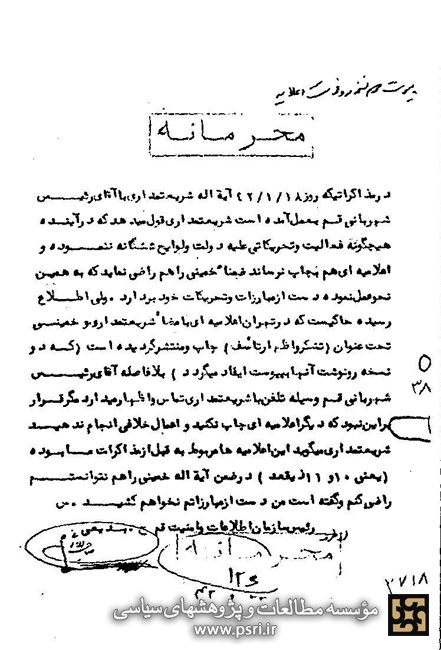 محرمانه
در مذاکراتیکه روز ۴۲/۱/۱۸ آیة اله شریعتمداری با آقای رئیس
شهربانی قم بعمل آمده است شریعتمداری قول میدهد که در آینده
هیچگونه فعالیت و تحریکاتی علیه دولت ولوایح ششگانه ننموده و
اعلامیه ای هم بچاپ نرساند ضمنا" خمینی را هم راضی نماید که به همین
نحو عمل نموده دست از مبارزات و تحریکات خود بردارد . ولی اطلاع
رسیده حاکیست که در تهران اعلامیه ای با مضاء شریعتمداری و خمینی
تحت عنوان (تشکر و اظهار تاسف) چاپ و منتشر گردیده است (که دو
نسخه رونوشت آنها بپیوست ایفاد میگردد ) بلافاصله آقای رئیس
شهربانی قم وسیله تلفن با شریعتمداری تماس و اظهار میدارد مگر قرار
براین نبود که دیگر اعلامیه ای چاپ نکنید و اعمال خلافی انجام ندهید
شریعتمداری میگوید این اعلامیه ها مربوط به قبل از مذاکرات ما بوده
(یعنی ۱۰ و ۱۱ ذیقعد ) در ضمن آیة اله خمینی را هم نتوانستم
راضی کنم وگفته است من دست از مبارزاتم نخواهم کشید . س
رئیس سازمان اطلاعات و امنیت قم
محرمانه
۳۸
۳۷۱۸
مؤسسه مطالعات و پژوهشهای سیاسی
www.psri.ir